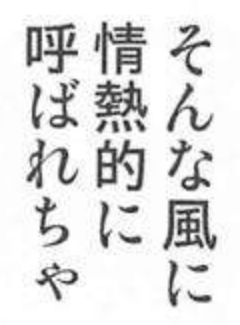 そんな風に
情熱的に
呼ばれちゃ